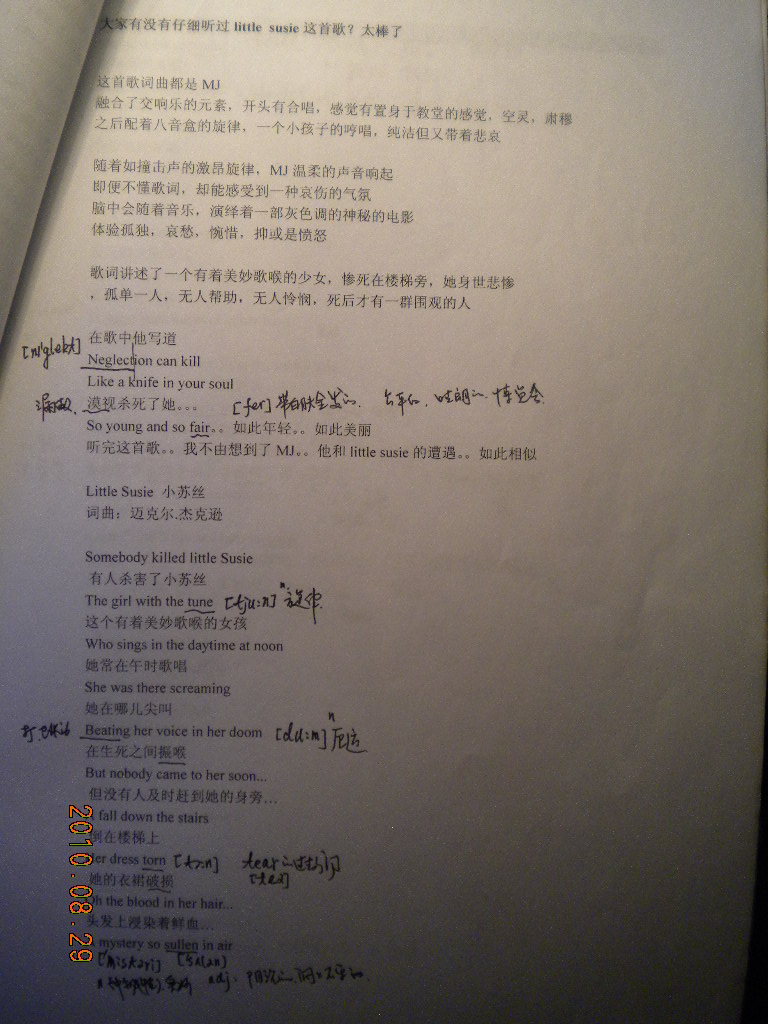 大家有没有仔细听过 little susie 这首歌？太棒了
这首歌词曲都是 MJ
融合了交响乐的元素，开头有合唱，感觉有置身于教堂的感觉，空灵，肃穆
之后配着八音盒的旋律，一个小孩子的哼唱，纯洁但又带着悲哀
随着如撞击声的激昂旋律，MJ 温柔的声音响起
即便不懂歌词，却能感受到一种哀伤的气氛
脑中会随着音乐，演绎着一部灰色调的神秘的电影
体验孤独，哀愁，惋惜，抑或是愤怒
歌词讲述了一个有着美妙歌喉的少女，惨死在楼梯旁，她身世悲惨
，孤单一人，无人帮助，无人怜悯，死后才有一群围观的人
在歌中他写道
[ni'glekt]
Neglection can kill
Like a knife in your soul
漠视杀死了她。。。 [fer]
So young and so fair。。如此年轻。。如此美丽
听完这首歌。。我不由想到了 MJ。。他和 little susie 的遭遇。。如此相似
Little Susie 小苏丝
词曲：迈克尔.杰克逊
Somebody killed little Susie
有人杀害了小苏丝
The girl with the tune [tju:n] n 旋律
这个有着美妙歌喉的女孩
Who sings in the daytime at noon
她常在午时歌唱
She was there screaming
她在哪儿尖叫
Beating her voice in her doom [du:m] n 厄运
在生死之间振喉
But nobody came to her soon...
但没有人及时赶到她的身旁…
fall down the stairs
倒在楼梯上
er dress torn [tɔ:n] tear
她的衣裙破损
h the blood in her hair...
头发上浸染着鲜血…
mystery so sullen in air
[mistəri] [sʌlən]
adj.
2010.08.29